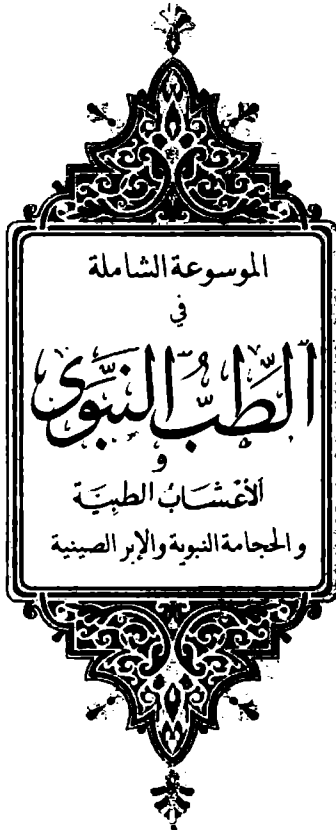 الموسوعة الشاملة
في
الطِّبُّ النَّبَوِى
و
الأعْشَابُ الطِبيَّة
والحجامة النبوية والإبر الصينية